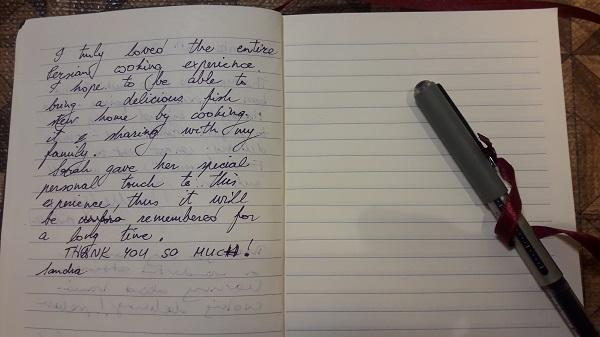 I truly loved the entire
Persian cooking experience.
I hope to be able to
bring a delicious fish
stew home by cooking
it & sharing with my
family.
Sarah gave her special
personal touch to this
experience, thus it will
be remembered for
a long time.
THANK YOU SO MUCH!
Sandra